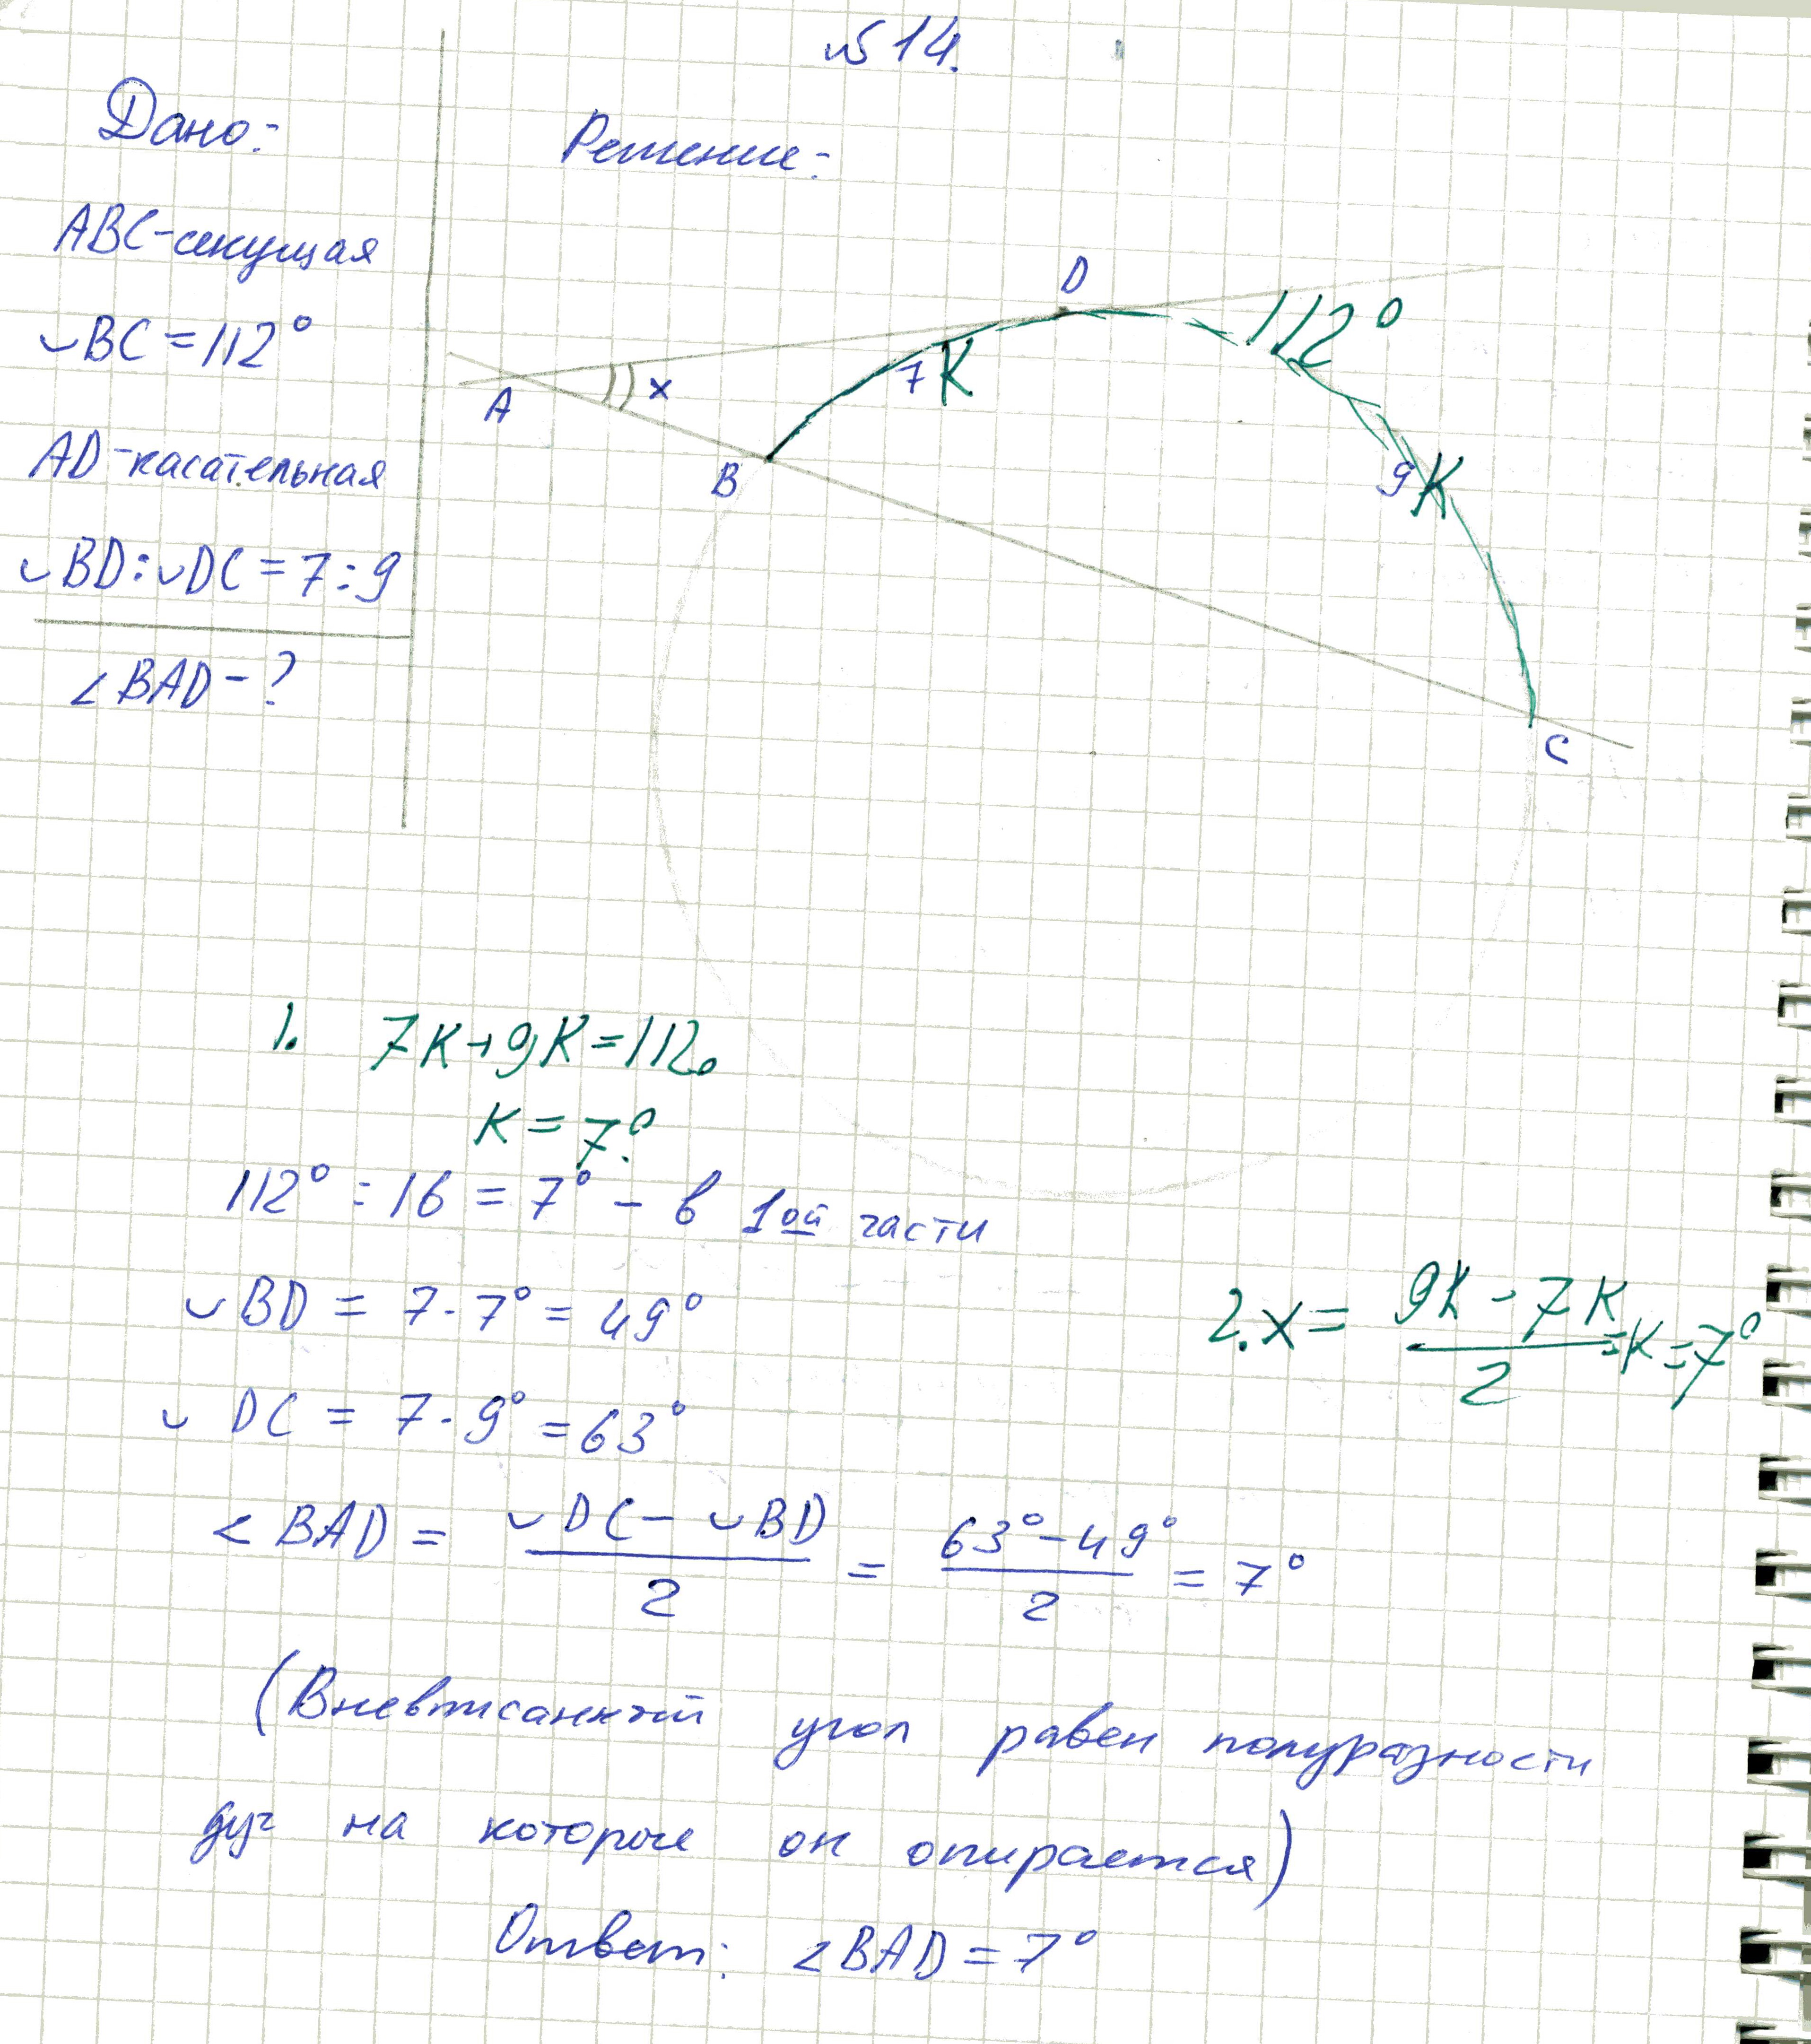 №14.
Дано:
Решение:
ABC-секущая
◡BC=112°
AD-касательная
◡BD:◡DC=7:9
∠BAD-?
D
112°
7K
x
A
B
9K
C
1. 7K+9K=112°
K=7°
112°:16=7° - в 1ой части
◡BD = 7·7° = 49°
2. x = (9K-7K)/2 = K = 7°
◡DC = 7·9° = 63°
∠BAD = (◡DC - ◡BD)/2 = (63°-49°)/2 = 7°
(Вневписанный угол равен полуразности
дуг на которые он опирается)
Ответ: ∠BAD=7°